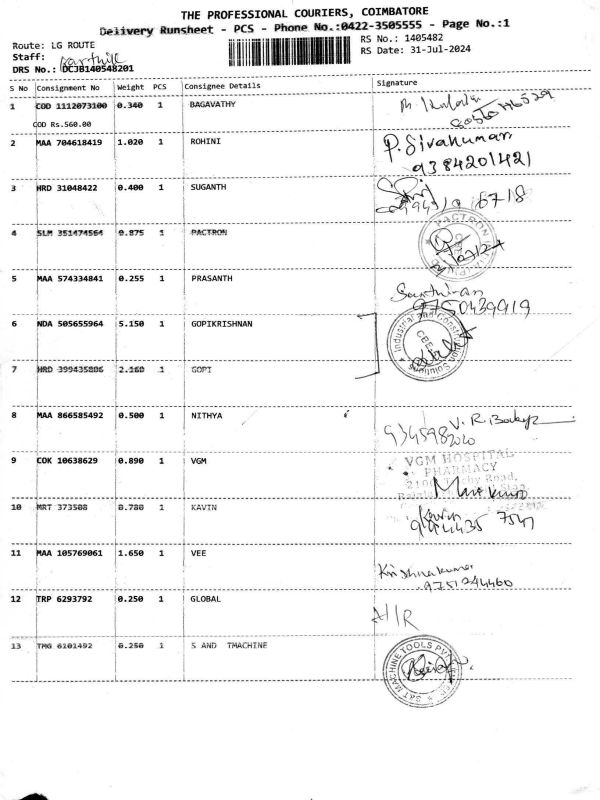 THE PROFESSIONAL COURIERS, COIMBATORE
Delivery Runsheet - PCS - Phone No.:0422-3505555 - Page No.:1
Route: LG ROUTE
RS No.: 1405482
Staff: Karthik
RS Date: 31-Jul-2024
DRS No.: DCJB140548201
S No Consignment No Weight PCS Consignee Details Signature
1 COD 1112073100 0.340 1 BAGAVATHY
COD Rs.560.00
2 MAA 704618419 1.020 1 ROHINI P. Sivakumar
9384201421
3 HRD 31048422 0.400 1 SUGANTH
4 SLM 351474564 0.875 1 PACTRON PACTRON
5 MAA 574334841 0.255 1 PRASANTH
9750439919
6 NDA 505655964 5.150 1 GOPIKRISHNAN Industrial and Construction Solutions
CBE
7 HRD 399435806 2.160 1 GOPI
8 MAA 866585492 0.500 1 NITHYA
9345982020
9 COK 10638629 0.890 1 VGM VGM HOSPITAL
PHARMACY
2100, Trichy Road,
10 MRT 373508 0.780 1 KAVIN Kavin
11 MAA 105769061 1.650 1 VEE Krishnakumar
9751244460
12 TRP 6293792 0.250 1 GLOBAL A/IR
13 TMG 6101492 0.250 1 S AND TMACHINE S&T MACHINE TOOLS PVT